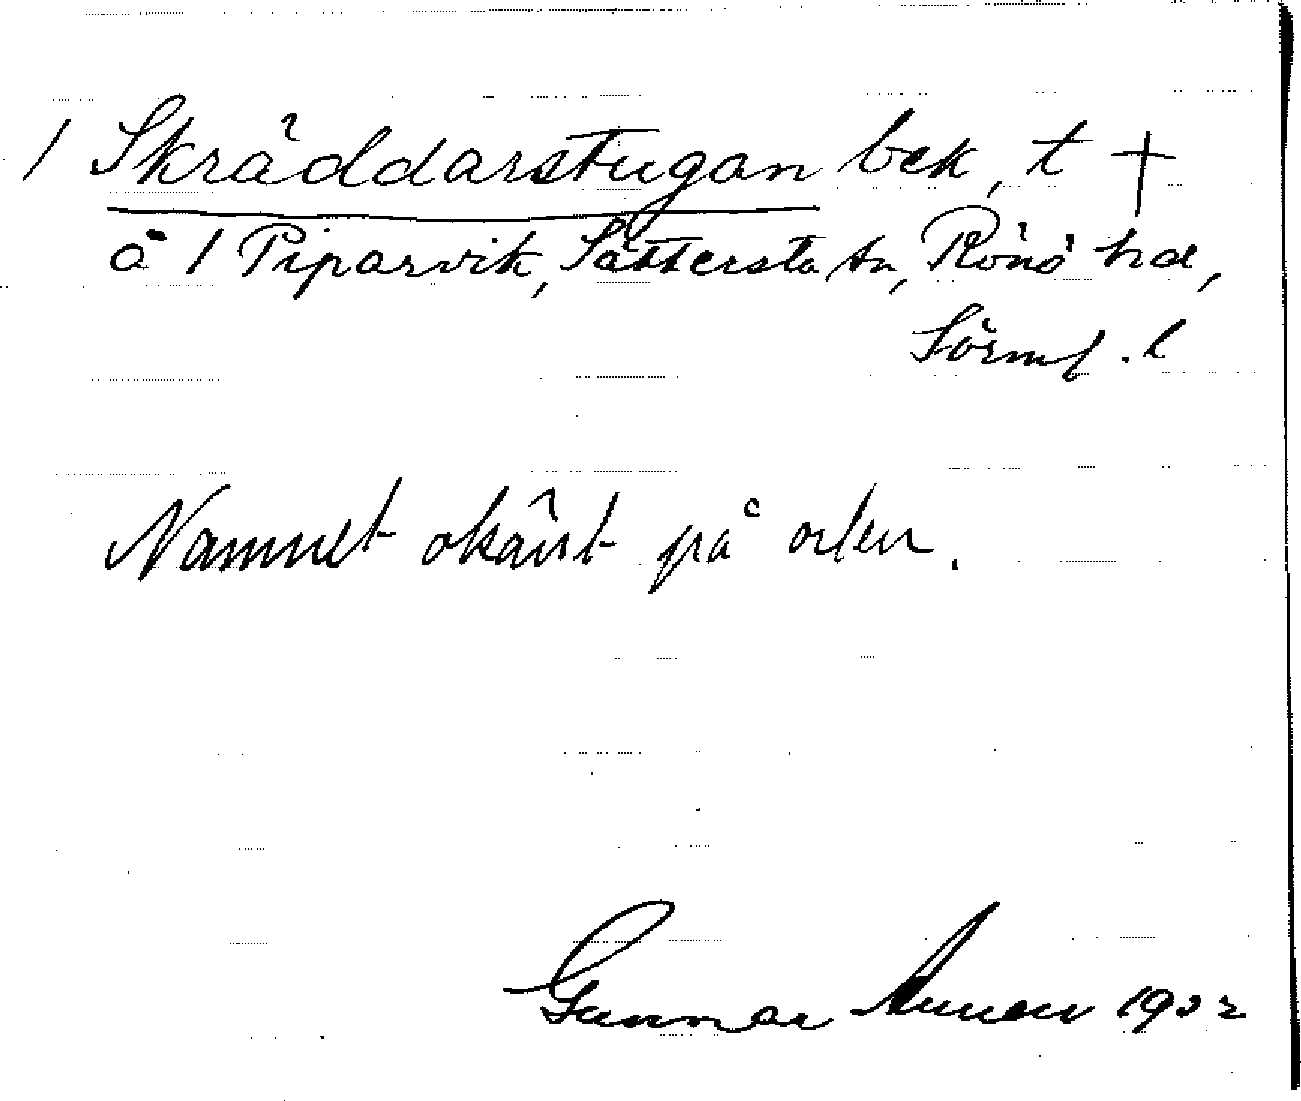 / Skräddarstugan bek, t +
å / Piparvik, Sättersta sn, Rönö hd,
Sörml. l
Namnet okänt på orten.
Gunnar 1932